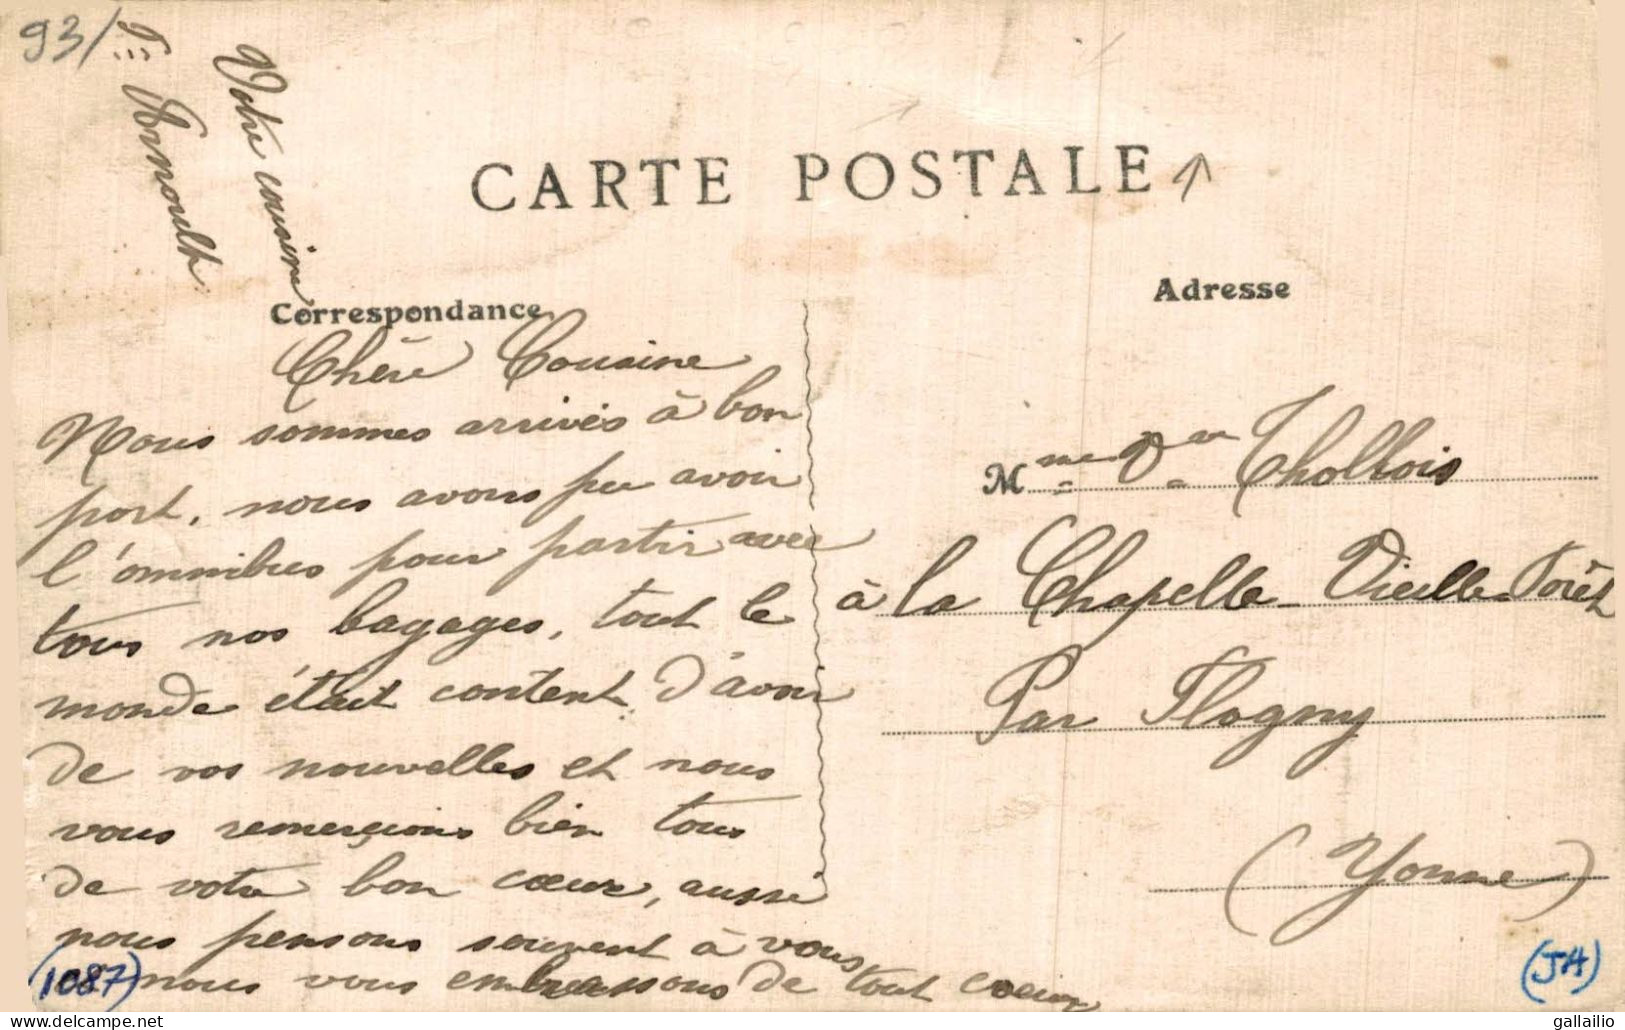 93/
CARTE POSTALE
Correspondance
Adresse
Chère Cousine
Nous sommes arrivés à bon
port, nous avons pu avoir
l'omnibus pour partir avec
tous nos bagages, tout le
monde était content d'avoir
de vos nouvelles et nous
vous remerçions bien tous
de votre bon cœur, aussi
nous pensons souvent à vous
nous vous embrassons de tout coeur
Votre cousine
Arnoult
Mme Vve Tholbois
à la Chapelle-Vieille-Forêt
Par Flogny
(Yonne)
(1087)
(JA)
gallailio
www.delcampe.net